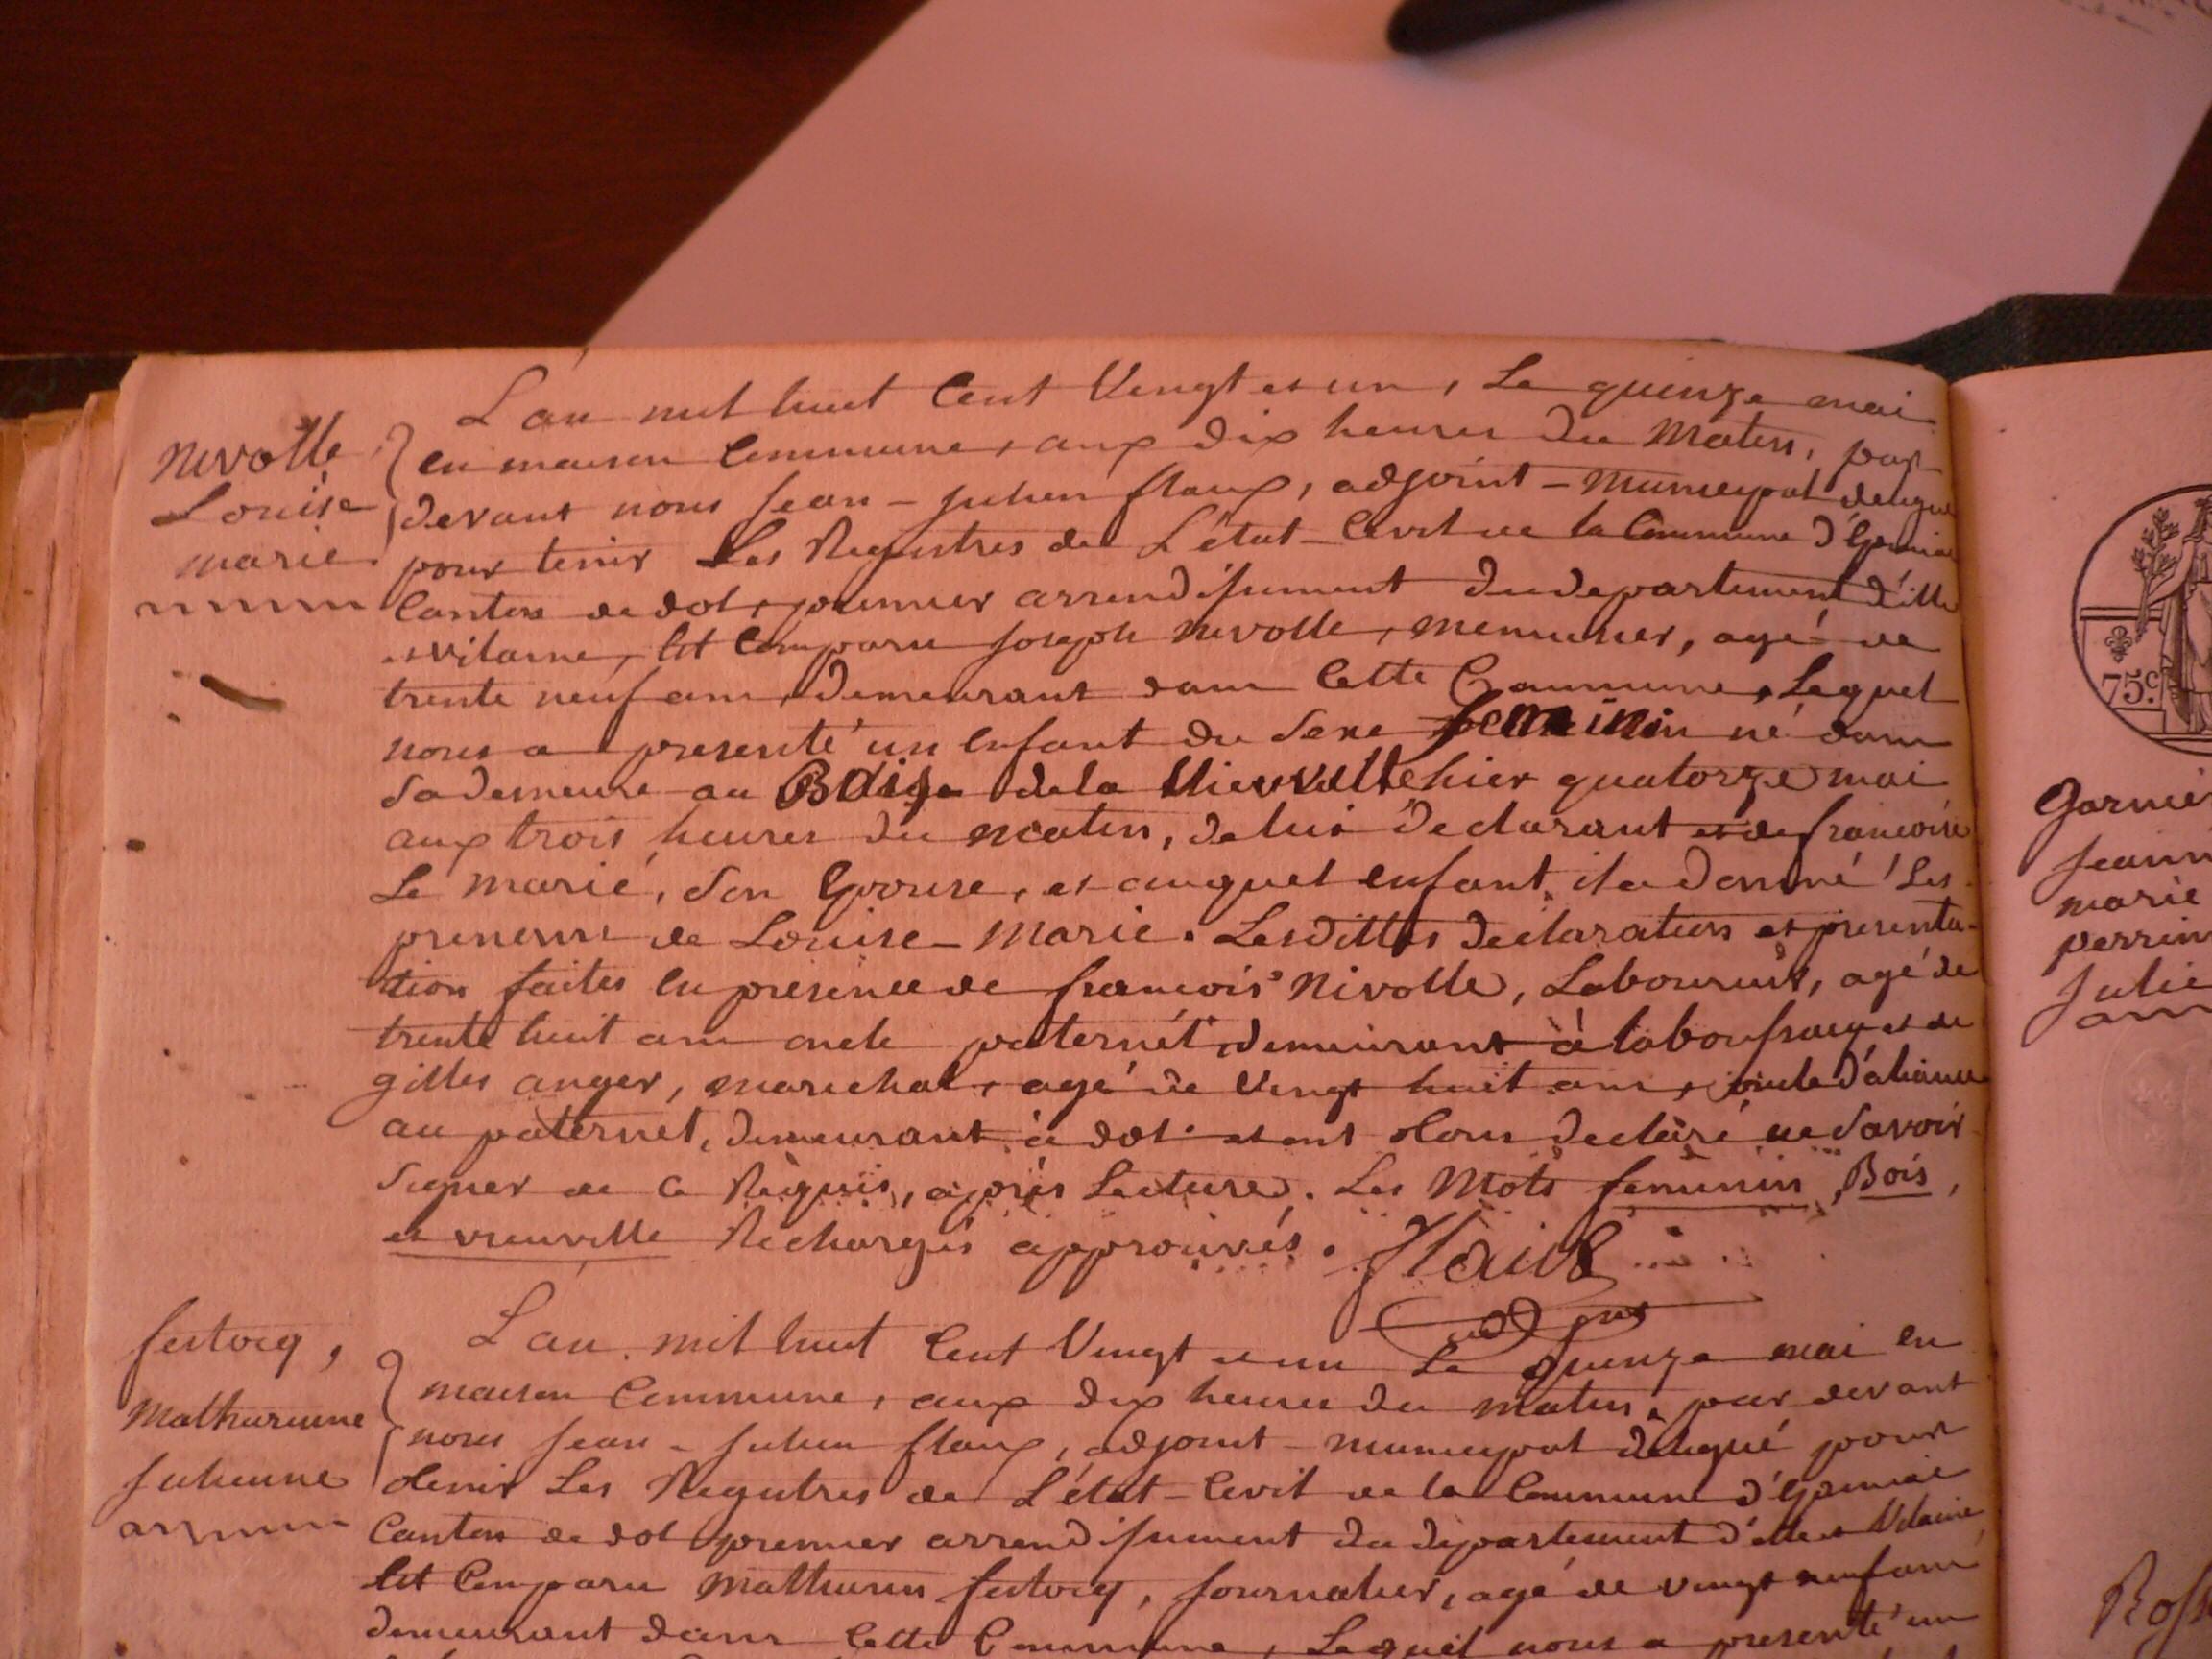 nivolle
Louise
marie
L'an mil huit Cent Vingt et un, Le quinze mai
en maison Commune, aux dix heures du Matin, par
devant nous Jean - Julien flaux, adjoint - Municipal délégué
pour tenir Les Registres de L'état - Civil de la Commune d'Epiniac
Canton de dol, premier arrondissement du departement d'ille
et vilaine, Est Comparu Joseph nivolle, menuisier, agé de
trente neuf ans, demeurant dans Cette Commune, Lequel
nous a presenté un enfant du Sexe feminin né dans
Sa demeure au Bois de la Vieuville hier quatorze mai
aux trois heures du matin, de lui declarant et de francoise
Le marié, Son Epouse, et auquel enfant il a donné Les
prenoms de Louise - Marie. Lesdittes declaration et presenta-
tion faites en presence de francois Nivolle, Laboureur, agé de
trente huit ans oncle paternel, demeurant à labousac, et de
gilles anger, marechal, agé de Vingt huit ans, oncle d'aliance
au paternel, demeurant à dol et ont tous declaré ne Savoir
Signer de Ce Requis, après Lecture. Les Mots feminin, Bois,
et vieuville Rechargés approuvés. Flaux
adjoint
festocq,
Mathurinne
Julienne
L'an mil huit Cent Vingt et un Le quinze mai en
maison Commune, aux dix heures du matin, par devant
nous Jean - Julien flaux, adjoint - municipal délégué pour
tenir Les Registres de L'état - Civil de la Commune d'Epiniac
Canton de dol premier arrondissement du departement d'ille et Vilaine
Est Comparu Mathurin festocq, Journalier, agé de vingt neuf ans
demeurant dans Cette Commune, Lequel nous a presenté un
75c.
Garnier
Jeann
marie
perrin
Julie